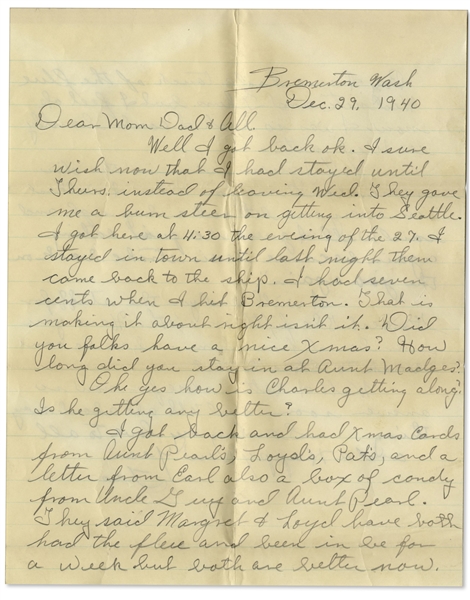 Bremerton Wash
Dec. 29, 1940
Dear Mom Dad & All.
Well I got back ok. I sure
wish now that I had stayed until
Thurs. instead of leaving Wed. They gave
me a bum steer on getting into Seattle.
I got here at 4:30 the evening of the 27. I
stayed in town until last night then
came back to the ship. I had seven
cents when I hit Bremerton. That is
making it about right isn't it. Did
you folks have a nice Xmas? How
long did you stay in at Aunt Madges?
Oh yes how is Charles getting along?
Is he getting any better?
I got back and had Xmas Cards
from Aunt Pearl's, Loyd's, Pat's, and a
letter from Earl also a box of candy
from Uncle Guy and Aunt Pearl.
They said Margret & Loyd have both
had the flue and been in be for
a week but both are better now.